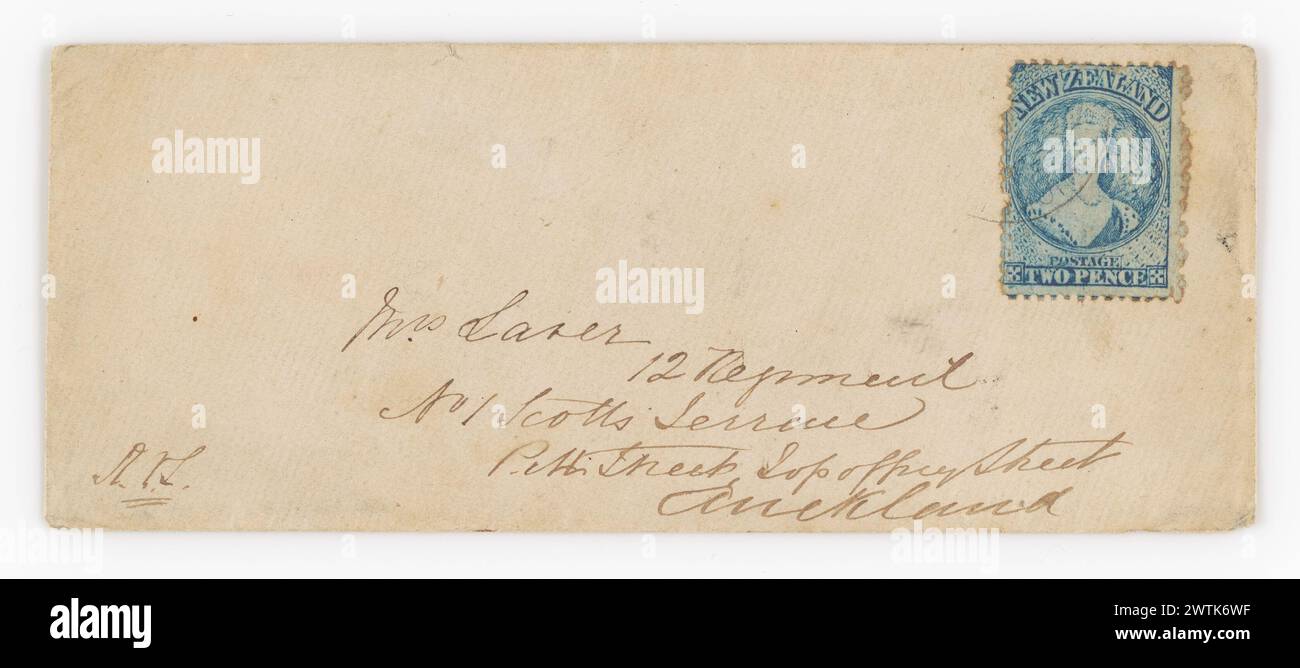 NEW ZEALAND
POSTAGE
TWO PENCE
Mrs Laver
12 Regiment
No 1 Scotts Terrace
Pitt Street, Top of Grey Street
Auckland
alamy
alamy
Image ID: 2WTK6WF
www.alamy.com